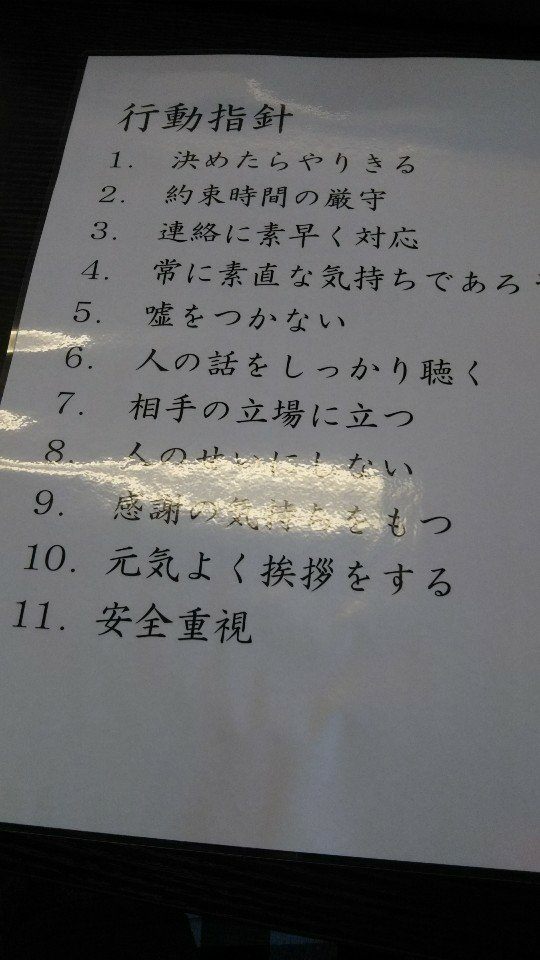 行動指針
1. 決めたらやりきる
2. 約束時間の厳守
3. 連絡に素早く対応
4. 常に素直な気持ちであろ
5. 嘘をつかない
6. 人の話をしっかり聴く
7. 相手の立場に立つ
8. 人のせいにしない
9. 感謝の気持ちをもつ
10. 元気よく挨拶をする
11. 安全重視